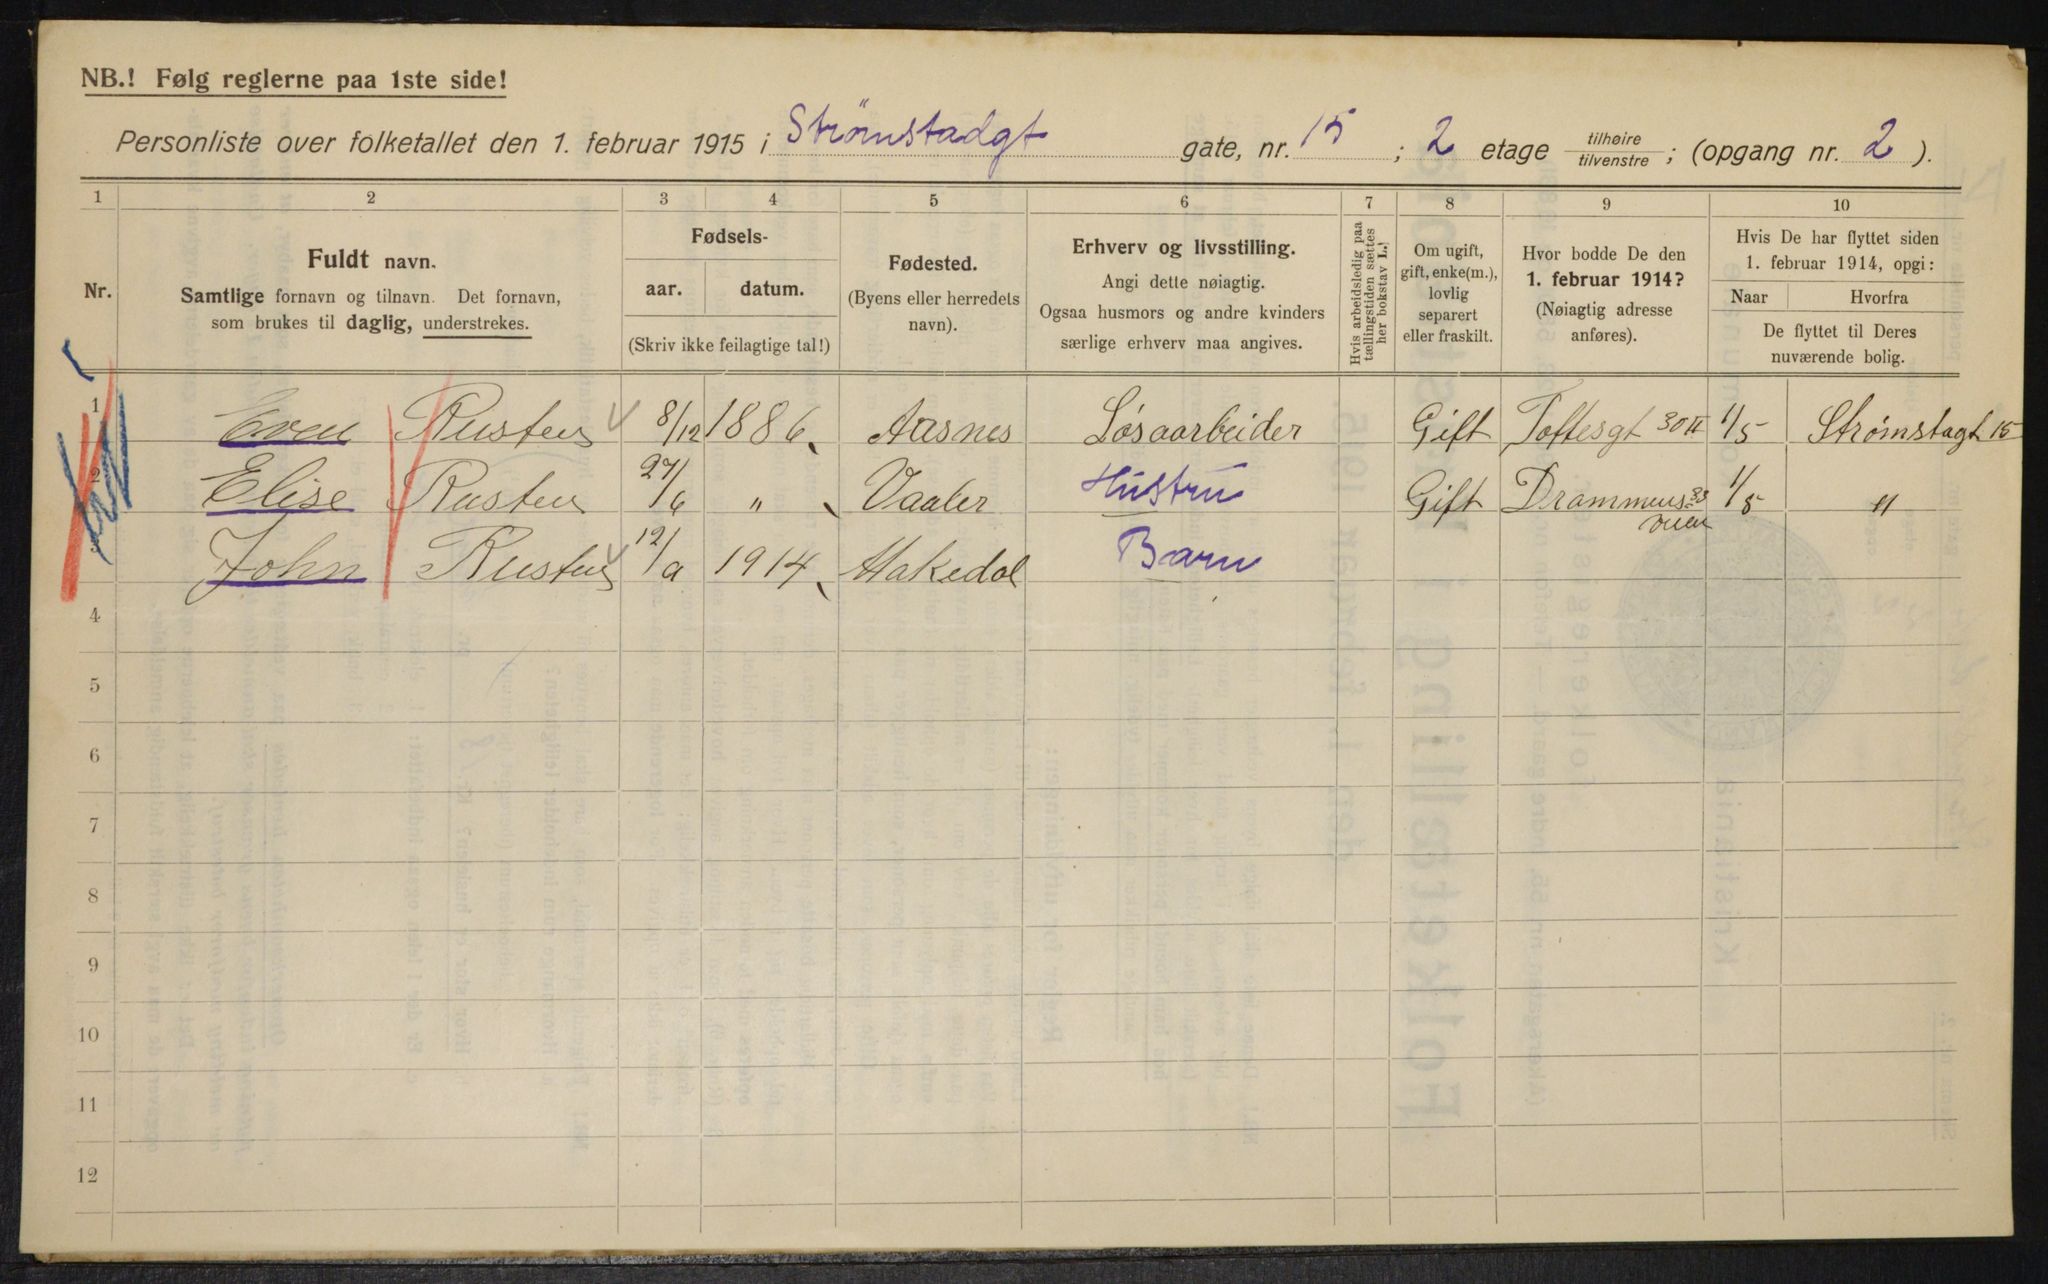 NB.! Følg reglerne paa 1ste side!
Personliste over folketallet den 1. februar 1915 i Strømstadgt gate, nr. 15 ; 2 etage tilhøire/tilvenstre ; (opgang nr. 2 ).
1 2 3 4 5 6 7 8 9 10
Nr.
Fuldt navn.
Samtlige fornavn og tilnavn. Det fornavn,
som brukes til daglig, understrekes.
Fødsels-
aar. datum.
(Skriv ikke feilagtige tal!)
Fødested.
(Byens eller herredets
navn).
Erhverv og livsstilling.
Angi dette nøiagtig.
Ogsaa husmors og andre kvinders
særlige erhverv maa angives.
Hvis arbeidsledig paa
tællingstiden sættes
her bokstav L.!
Om ugift,
gift, enke(m.),
lovlig
separert
eller fraskilt.
Hvor bodde De den
1. februar 1914?
(Nøiagtig adresse
anføres).
Hvis De har flyttet siden
1. februar 1914, opgi:
Naar Hvorfra
De flyttet til Deres
nuværende bolig.
1 Even Rusten 8/12 1886 Aasnes Løsaarbeider Gift Toftesgt 30 II 1/5 Strømstagt 15
2 Elise Rusten 27/6 " Vaaler Hustru Gift Drammensveien 33 1/5 "
3 John Rusten 12/9 1914 Hakedal Barn
4
5
6
7
8
9
10
11
12